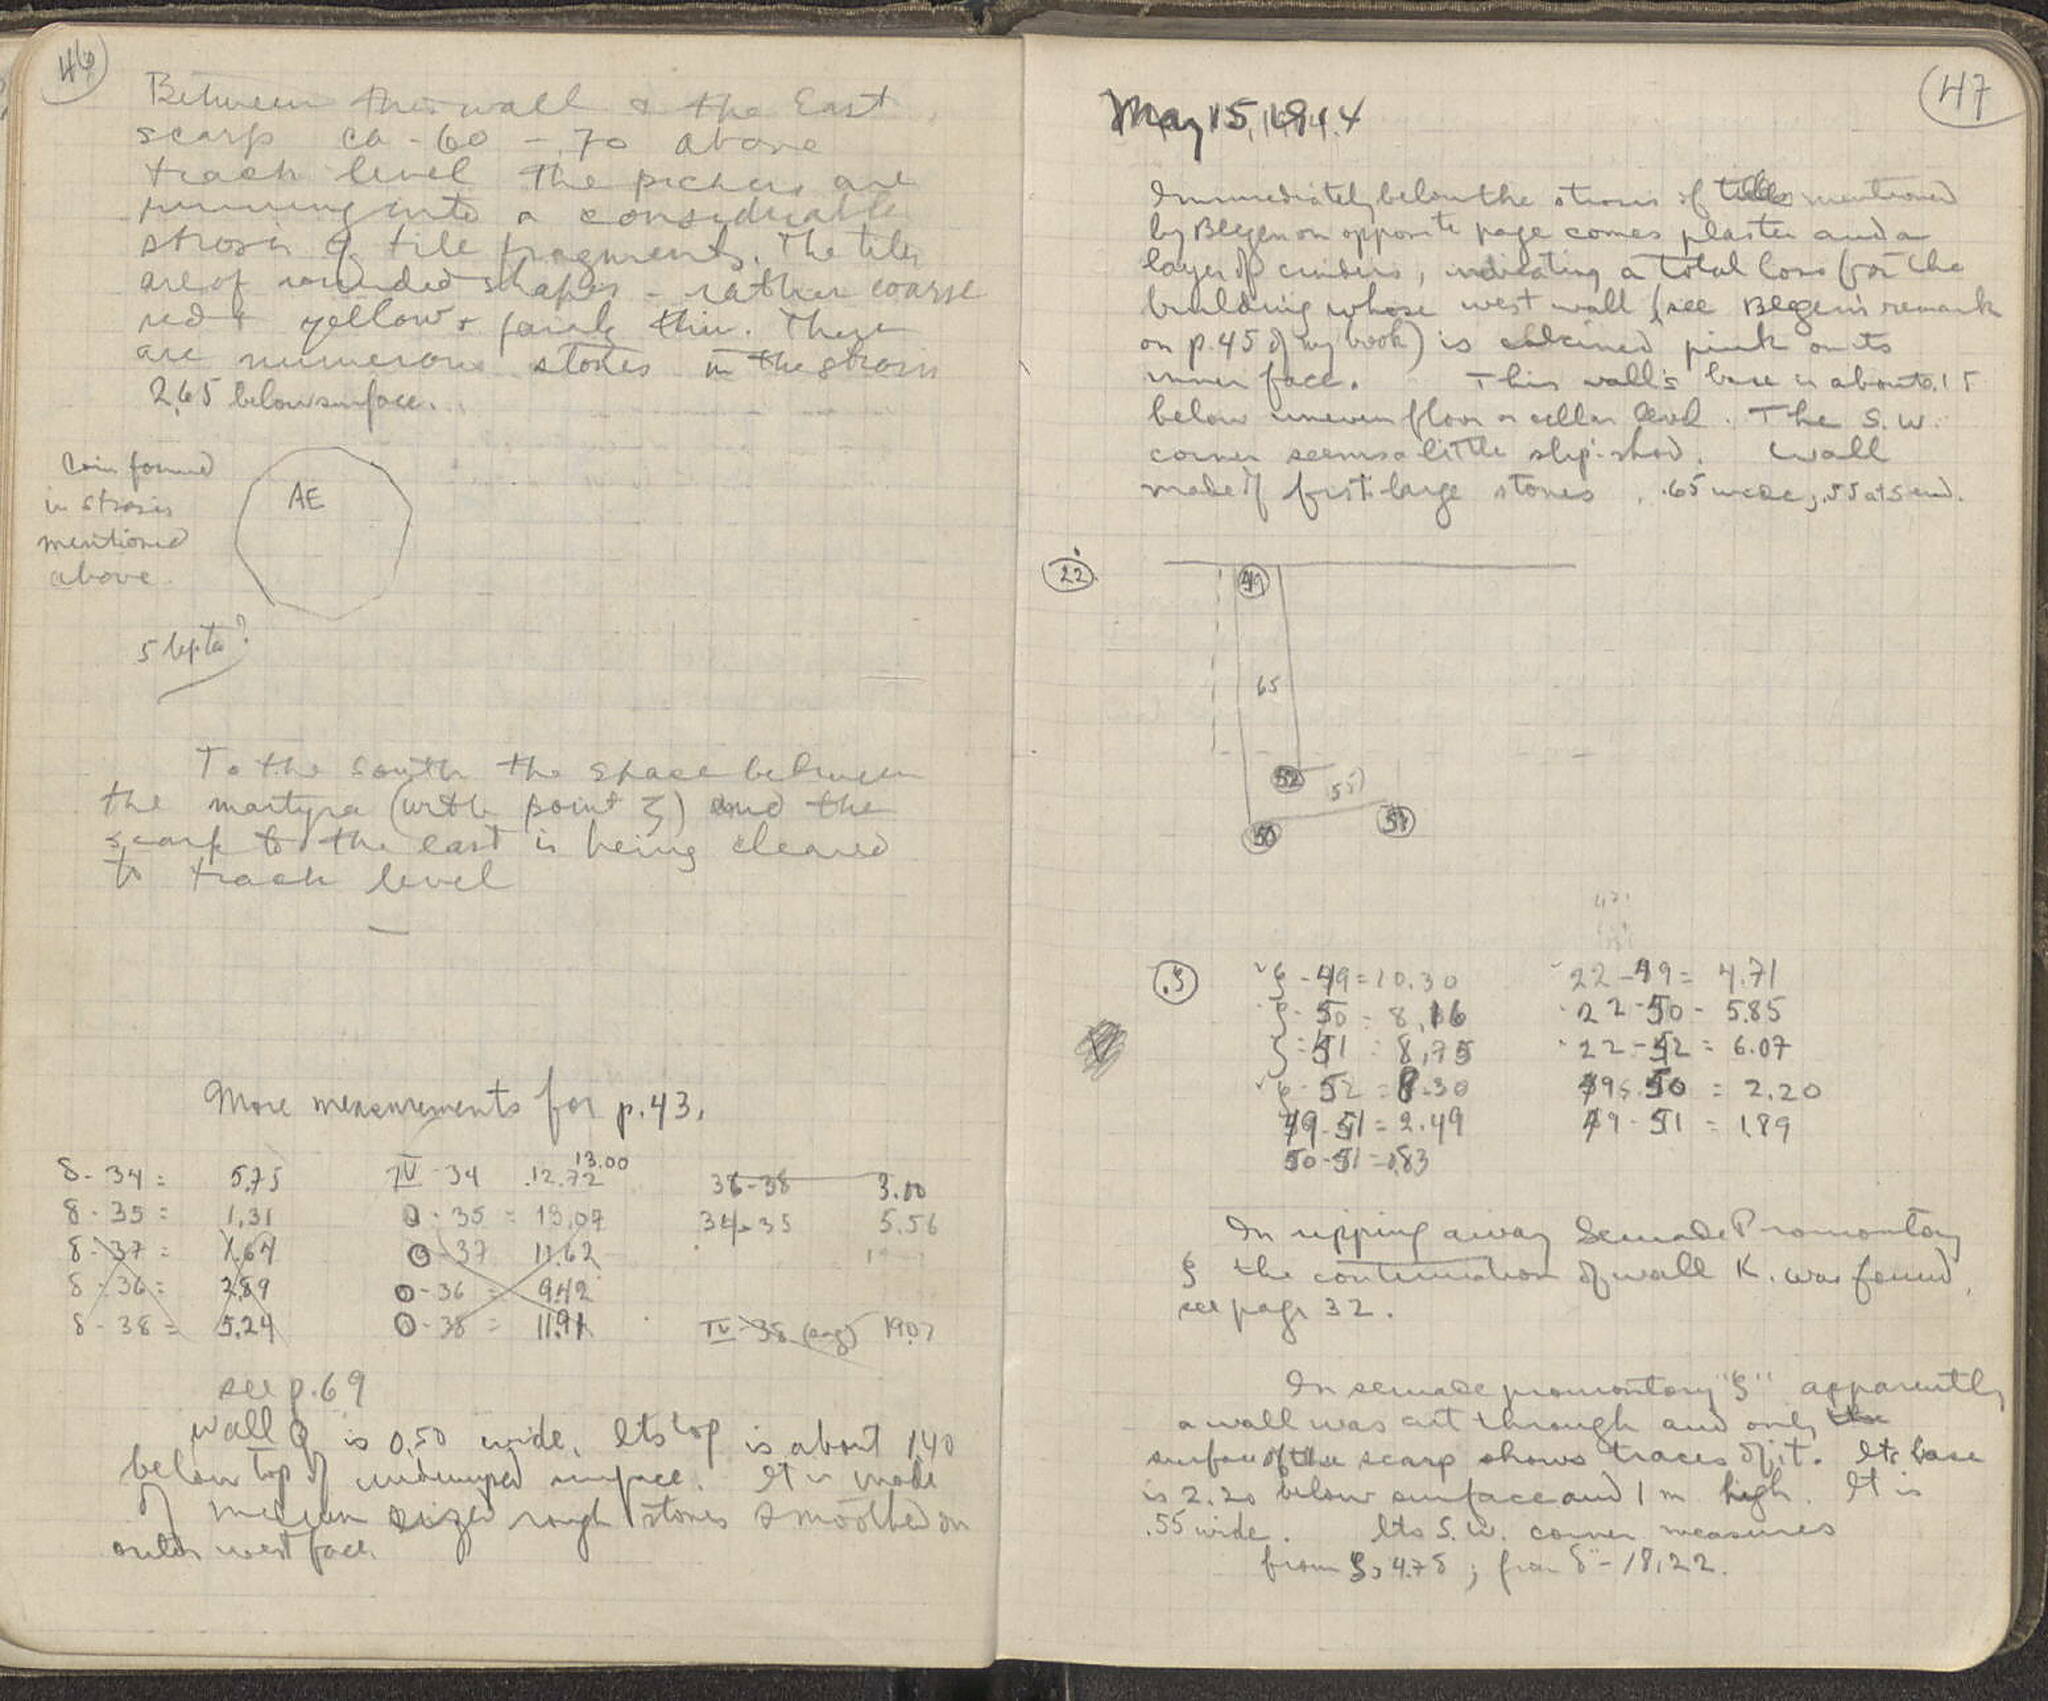 46
Between this wall & the East
scarp ca .60 - .70 above
track level the pickers are
running into a considerable
strosis of tile fragments. The tiles
are of rounded shapes - rather coarse
red & yellow & fairly thin. There
are numerous stones in the strosis
2,65 below surface.
Coin found
in strosis
mentioned
above.
AE
5 lepta?
To the South the space between
the martyra (with point ζ) and the
scarp to the east is being cleared
to track level
More measurements for p.43,
δ - 34 = 5,75 IV - 34 12.72 13.00 36-38 3.00
δ - 35 = 1,31 O - 35 = 13,07 34-35 5.56
δ - 37 = 1,64 O - 37 11.62
δ - 36 = 2,89 O - 36 = 9.42
δ - 38 = 5,24 O - 38 = 11.91 IV - 38 1907
see p.69
Wall Q is 0,50 wide. Its top is about 1,40
below top of undumped surface. It is made
of medium sized rough stones smoothed on
outer west face.
47
May 15, 1914
Immediately below the strosis of tiles mentioned
by Blegen on opposite page comes plaster and a
layer of cinders, indicating a total loss for the
building whose west wall (see Blegen's remark
on p.45 of my book) is calcined pink on its
inner face. This wall's base is about .15
below uneven floor or cellar level. The S.W.
corner seems a little slip-shod. Wall
made of fist-large stones, .65 wide, .55 at S end.
22
49
65
52
55
50
51
ζ
ζ - 49 = 10.30 22 - 49 = 4.71
ζ - 50 = 8,16 22 - 50 - 5.85
ζ - 51 = 8,75 22 - 52 = 6.07
ζ - 52 = 8.30 49 - 50 = 2.20
49 - 51 = 2.49 49 - 51 = 1.89
50 - 51 = 0.83
In ripping away Semade Promontory
ζ the continuation of wall K. was found,
see page 32.
In semade promontory "ζ" apparently
a wall was cut through and only the
surface of the scarp shows traces of it. Its base
is 2.20 below surface and 1 m high. It is
.55 wide. Its S.W. corner measures
from ζ, 4.78 ; from δ - 18,22.